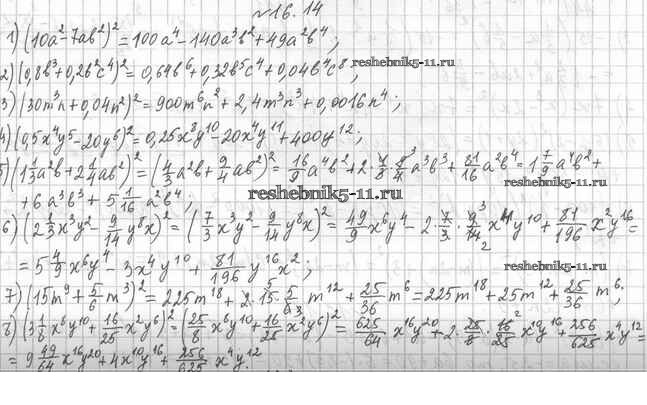 №16.14
1) (10a²-7ab²)² = 100a⁴-140a³b²+49a²b⁴;
reshebnik5-11.ru
2) (0,8b³+0,2b²c⁴)² = 0,64b⁶+0,32b⁵c⁴+0,04b⁴c⁸;
3) (30m³n+0,04n²)² = 900m⁶n²+2,4m³n³+0,0016n⁴;
4) (0,5x⁴y⁵-20y⁶)² = 0,25x⁸y¹⁰-20x⁴y¹¹+400y¹²;
5) (1 1/3 a²b+2 1/4 ab²)² = (4/3 a²b+9/4 ab²)² = 16/9 a⁴b²+2· 4/3 · 9/4 a³b³+81/16 a²b⁴ = 1 7/9 a⁴b²+
+6a³b³+5 1/16 a²b⁴;
reshebnik5-11.ru
6) (2 1/3 x³y²-9/14 y⁸x)² = (7/3 x³y²-9/14 y⁸x)² = 49/9 x⁶y⁴-2· 7/3 · 9/14 x⁴y¹⁰+81/196 x²y¹⁶ =
= 5 4/9 x⁶y⁴-3x⁴y¹⁰+81/196 y¹⁶x²;
reshebnik5-11.ru
7) (15m⁹+5/6 m³)² = 225m¹⁸+2·15· 5/6 m¹²+25/36 m⁶ = 225m¹⁸+25m¹²+25/36 m⁶.
8) (3 1/8 x⁸y¹⁰+16/25 x²y⁶)² = (25/8 x⁸y¹⁰+16/25 x²y⁶)² = 625/64 x¹⁶y²⁰+2· 25/8 · 16/25 x¹⁰y¹⁶+256/625 x⁴y¹² =
= 9 49/64 x¹⁶y²⁰+4x¹⁰y¹⁶+256/625 x⁴y¹².